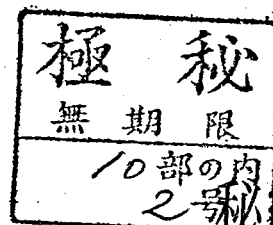 極秘
無期限
10部の内
2号
秘